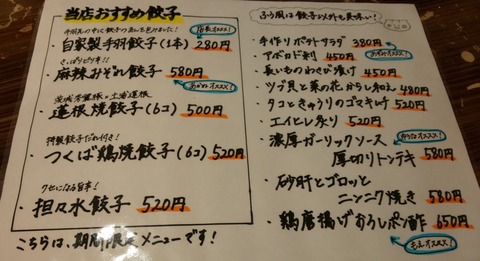 当店おすすめ餃子
手羽元の中に餃子のあんを包みました!
店長オススメ!
・自家製手羽餃子(1本) 280円
さっぱりピリ辛!!
・麻辣みぞれ餃子 580円
オススメ!
・蓮根焼餃子(6コ) 500円
特製餃子だれ付き!
・つくば鶏焼餃子(6コ) 520円
クセになる旨辛!
・担々水餃子 520円
こちらは、期間限定メニューです!
は餃子以外も美味い!
・手作りポテトサラダ 380円
オススメ!
・アボカド刺 450円
・長いものわさび漬け 450円
・ツブ貝と菜の花からし和え 480円
・タコときゅうりのゴマキムチ 520円
・エイヒレ炙り 520円
オススメ!
・濃厚ガーリックソース
厚切りトンテキ 580円
・砂肝とゴロッと
ニンニク焼き 580円
・鶏唐揚げおろしポン酢 650円
オススメ!